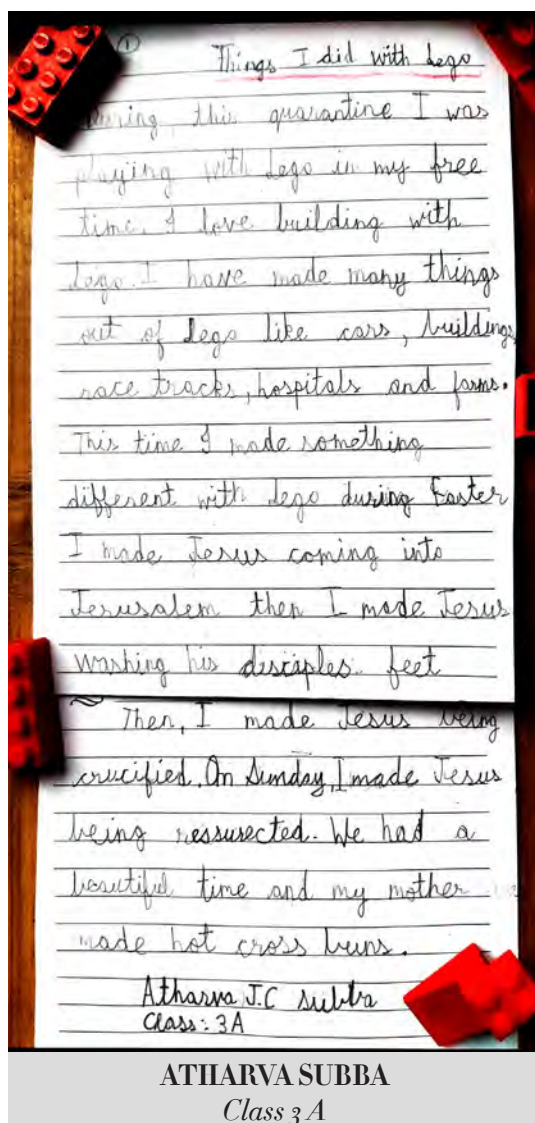 1
Things I did with Lego
During this quarantine I was
playiing with Lego in my free
time. I love building with
Lego. I have made many things
out of Lego like cars, buildings,
race tracks, hospitals and farms.
This time I made something
different with Lego during Easter
I made Jesus coming into
Jerusalem then I made Jesus
washing his disciples feet
Then, I made Jesus being
crucified. On Sunday, I made Jesus
being ressurected. We had a
beautiful time and my mother
made hot cross buns.
Atharva J.C Subba
Class: 3A
ATHARVA SUBBA
Class 3 A